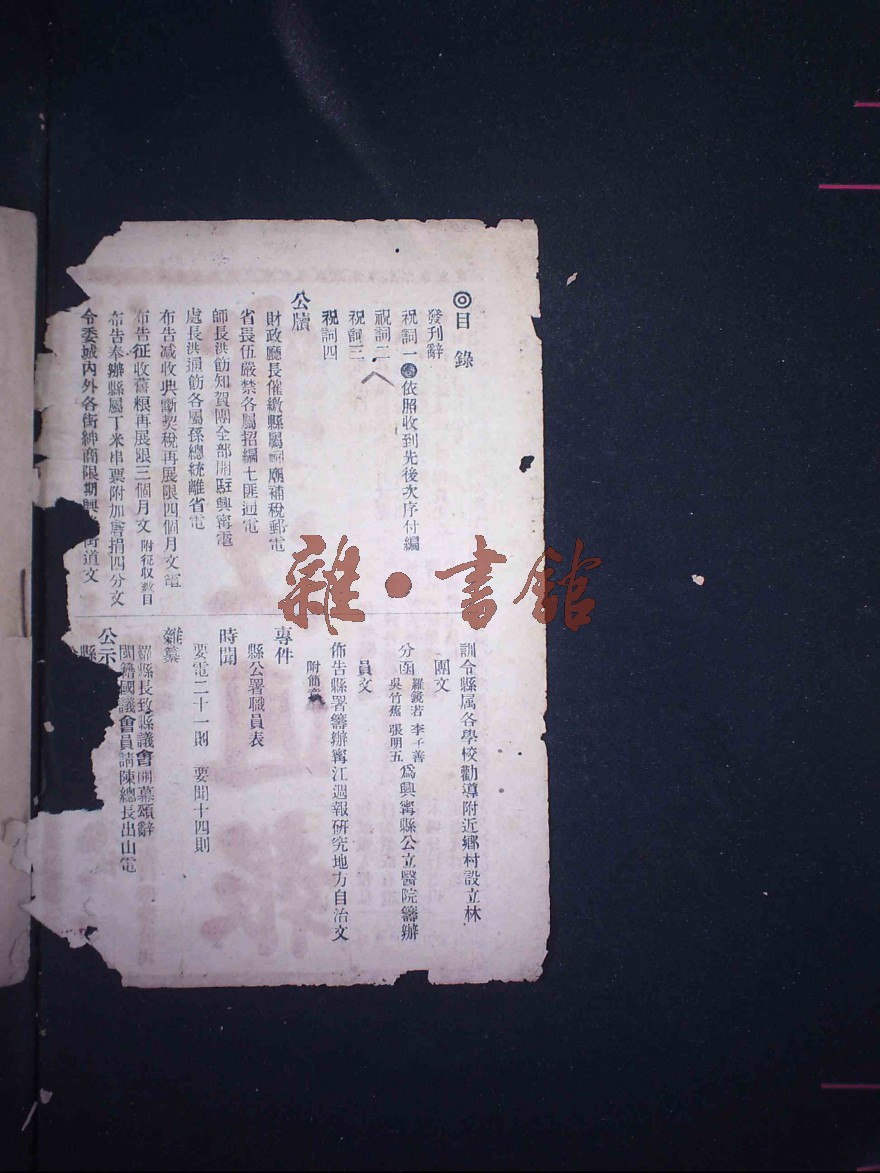 ◎目錄
發刊辭
祝詞一 依照收到先後次序付編
祝詞二
祝詞三
祝詞四
公牘
財政廳長催繳縣屬祠廟補稅郵電
省畏伍嚴禁各屬招編七匪迴電
師長洪飭知賀團全部開駐興甯電
處長洪通飭各屬孫總統離省電
布告减收典斷契稅再展限四個月文電
布告征收舊粮再展限三個月文 附征収数目
布告奉辦縣屬丁米串票附加警捐四分文
令委城內外各街紳商限期興 街道文
訓令縣属各學校勸導附近鄉村設立林
團文
分函 羅鏡若 李子善 吳竹蕉 張明五 爲興甯縣公立醫院籌辦
員文
佈告縣署籌辦甯江週報研究地方自治文
附簡章
專件
縣公署職員表
時聞
要電二十一則 要聞十四則
雜纂
羅縣長致縣議會開幕頌辭
閩籍國議會員請陳總長出山電
公示
縣
雜·書館